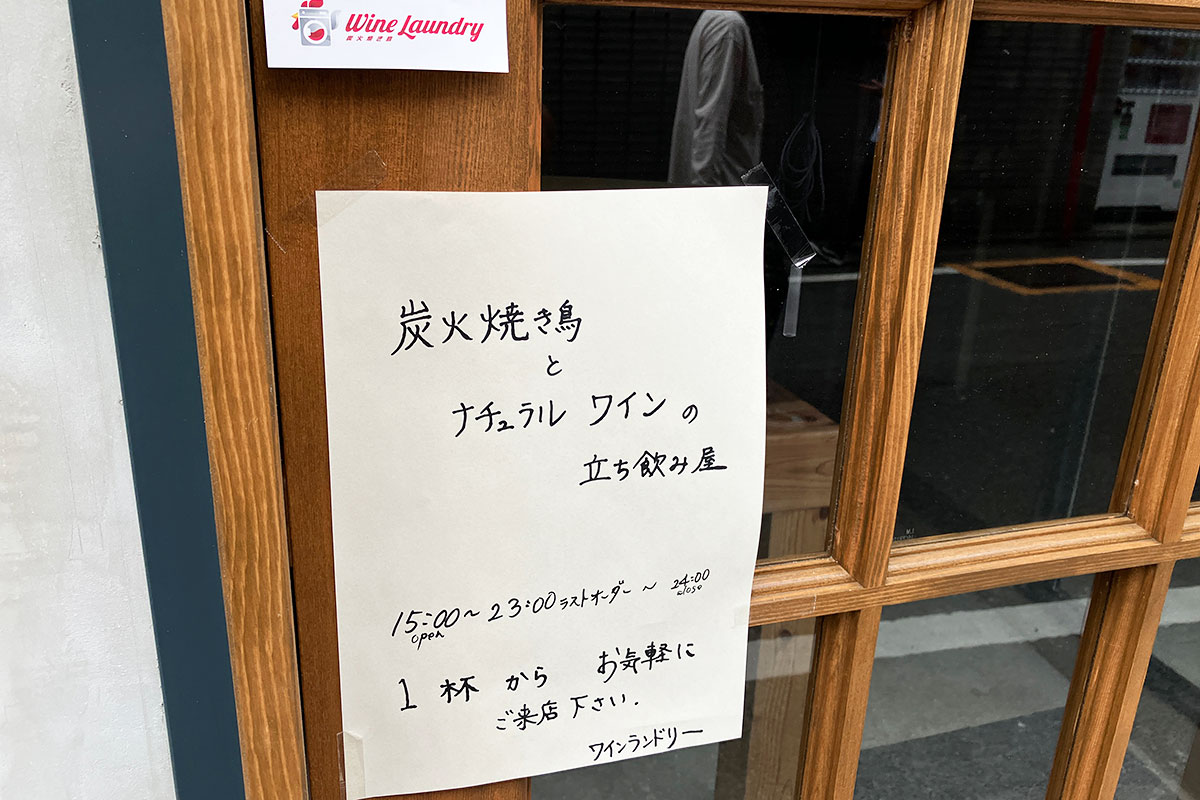 Wine Laundry
炭火焼き鳥
炭火焼き鳥
と
ナチュラル ワイン の
立ち飲み屋
15:00〜23:00ラストオーダー〜 24:00
open close
1 杯 から お気軽に
ご来店 下さい.
ワインランドリー